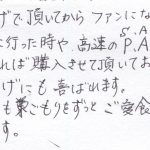 げで、頂いてからファンにな
に行った時や、高速のS.A
P.A
れば購入させて頂いてお
げにも喜ばれます。
も巣ごもりをずっとご愛食
す。